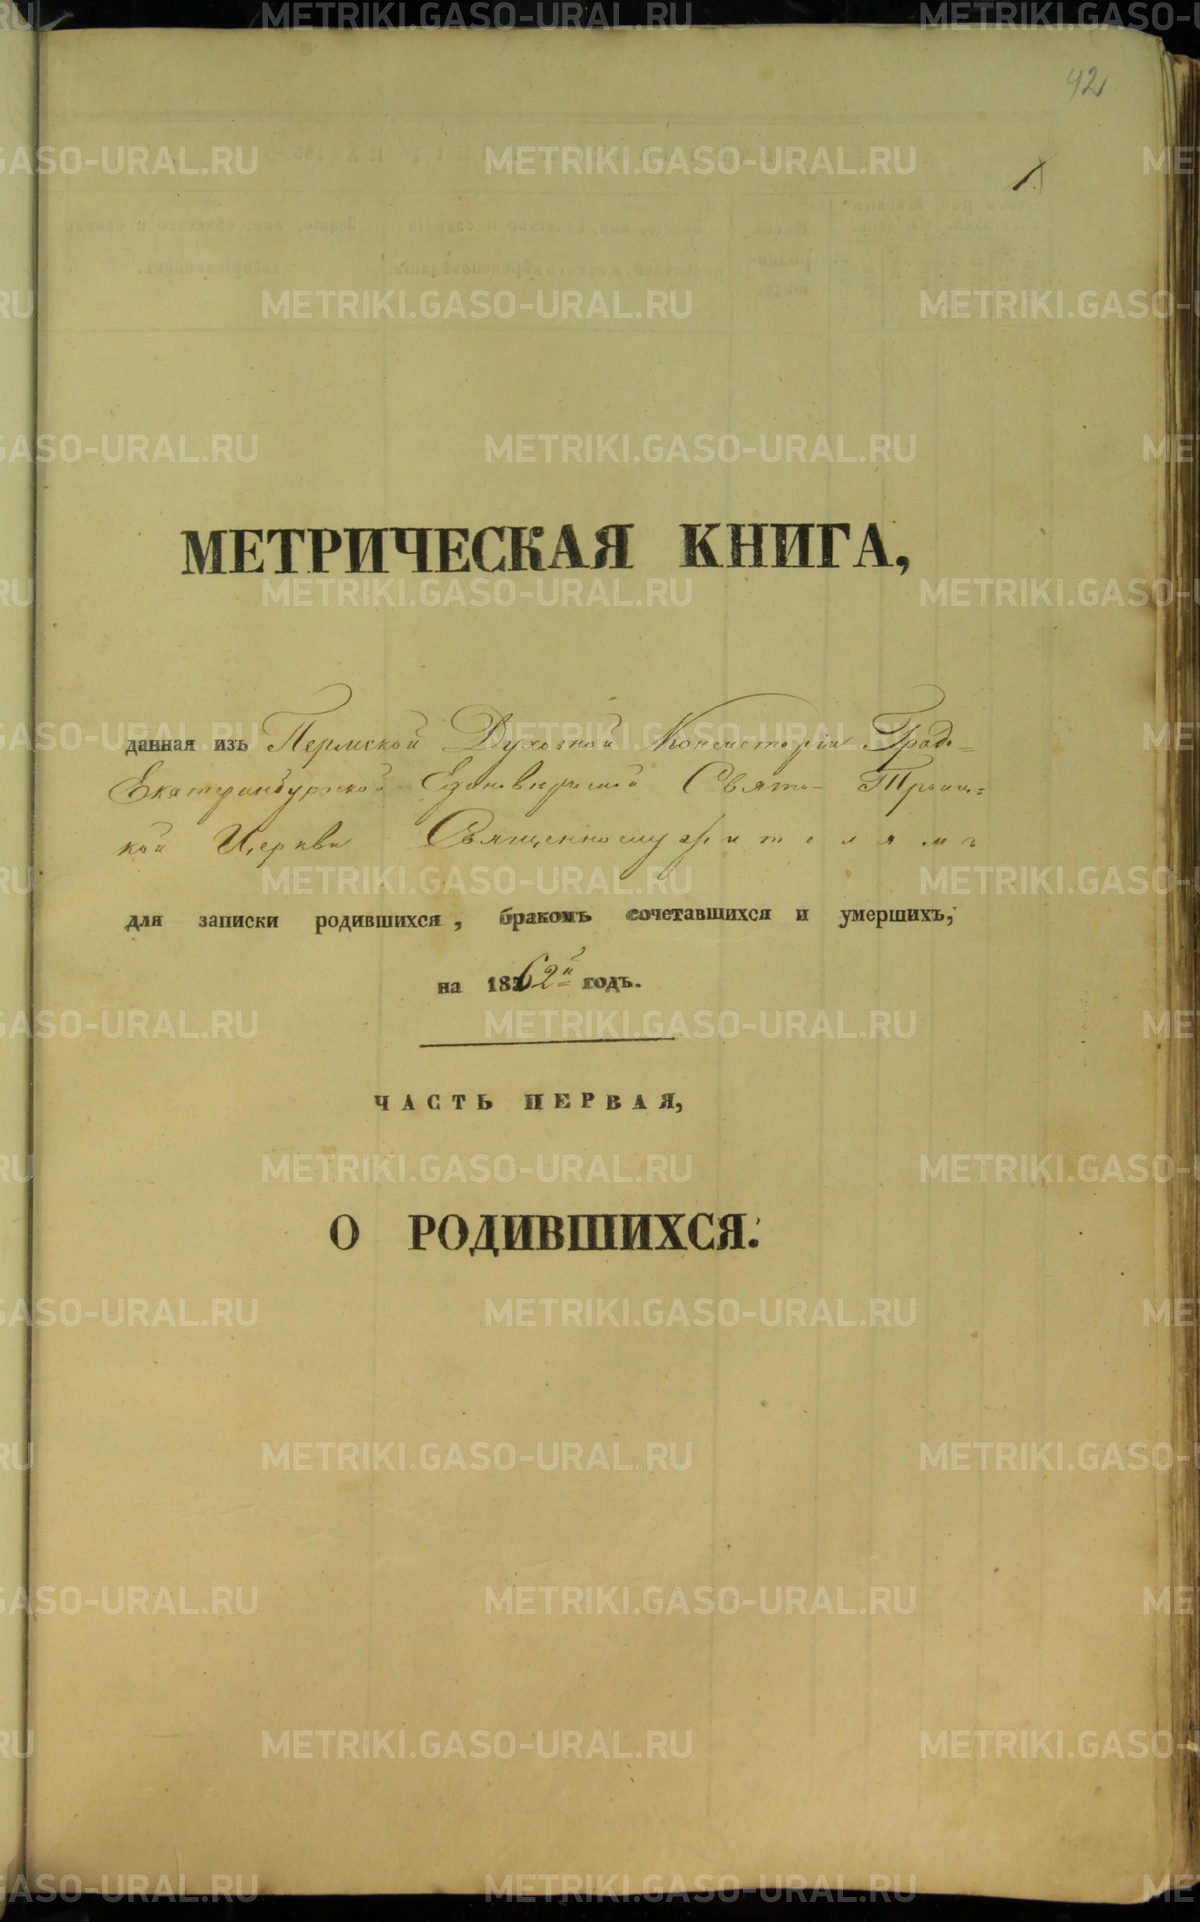 42
1.
МЕТРИЧЕСКАЯ КНИГА,
данная изъ Пермской Духовной Консисторіи Градо-
Екатеринбургской Единовѣрческой Свято-Троиц=
кой Церкви Священнослужителямъ
для записки родившихся, бракомъ сочетавшихся и умершихъ,
на 1862й годъ.
ЧАСТЬ ПЕРВАЯ,
О РОДИВШИХСЯ.
METRIKI.GASO-URAL.RU